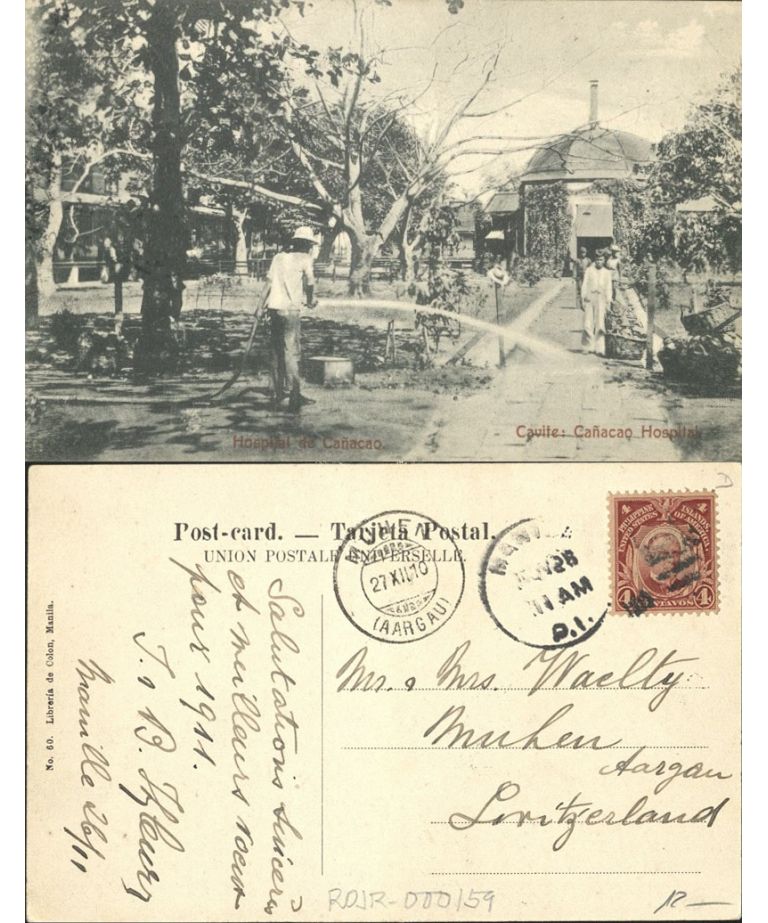 Hospital de Cañacao.
Cavite: Cañacao Hospital.
Post-card. — Tarjeta Postal.
UNION POSTALE UNIVERSELLE.
MUHEN
27 XII 10
(AARGAU)
MANILA
NOV 28
11 AM
P.I.
4 4
PHILIPPINE ISLANDS
UNITED STATES OF AMERICA
4 CENTAVOS 4
Mr. & Mrs. Waelty
Muhen
Aargau
Switzerland
Salutations sincères
et meilleurs voeux
pour 1911.
J. & B.
Manille 26/11
No. 60. Librería de Colon, Manila.
RDJR-000159
12 —